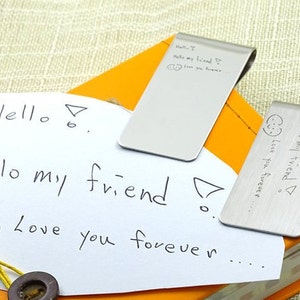 Hello!
Hello my friend!
Love you forever...
ello !.
lo my friend !
Love you forever ....
my friend !
Love you forever...